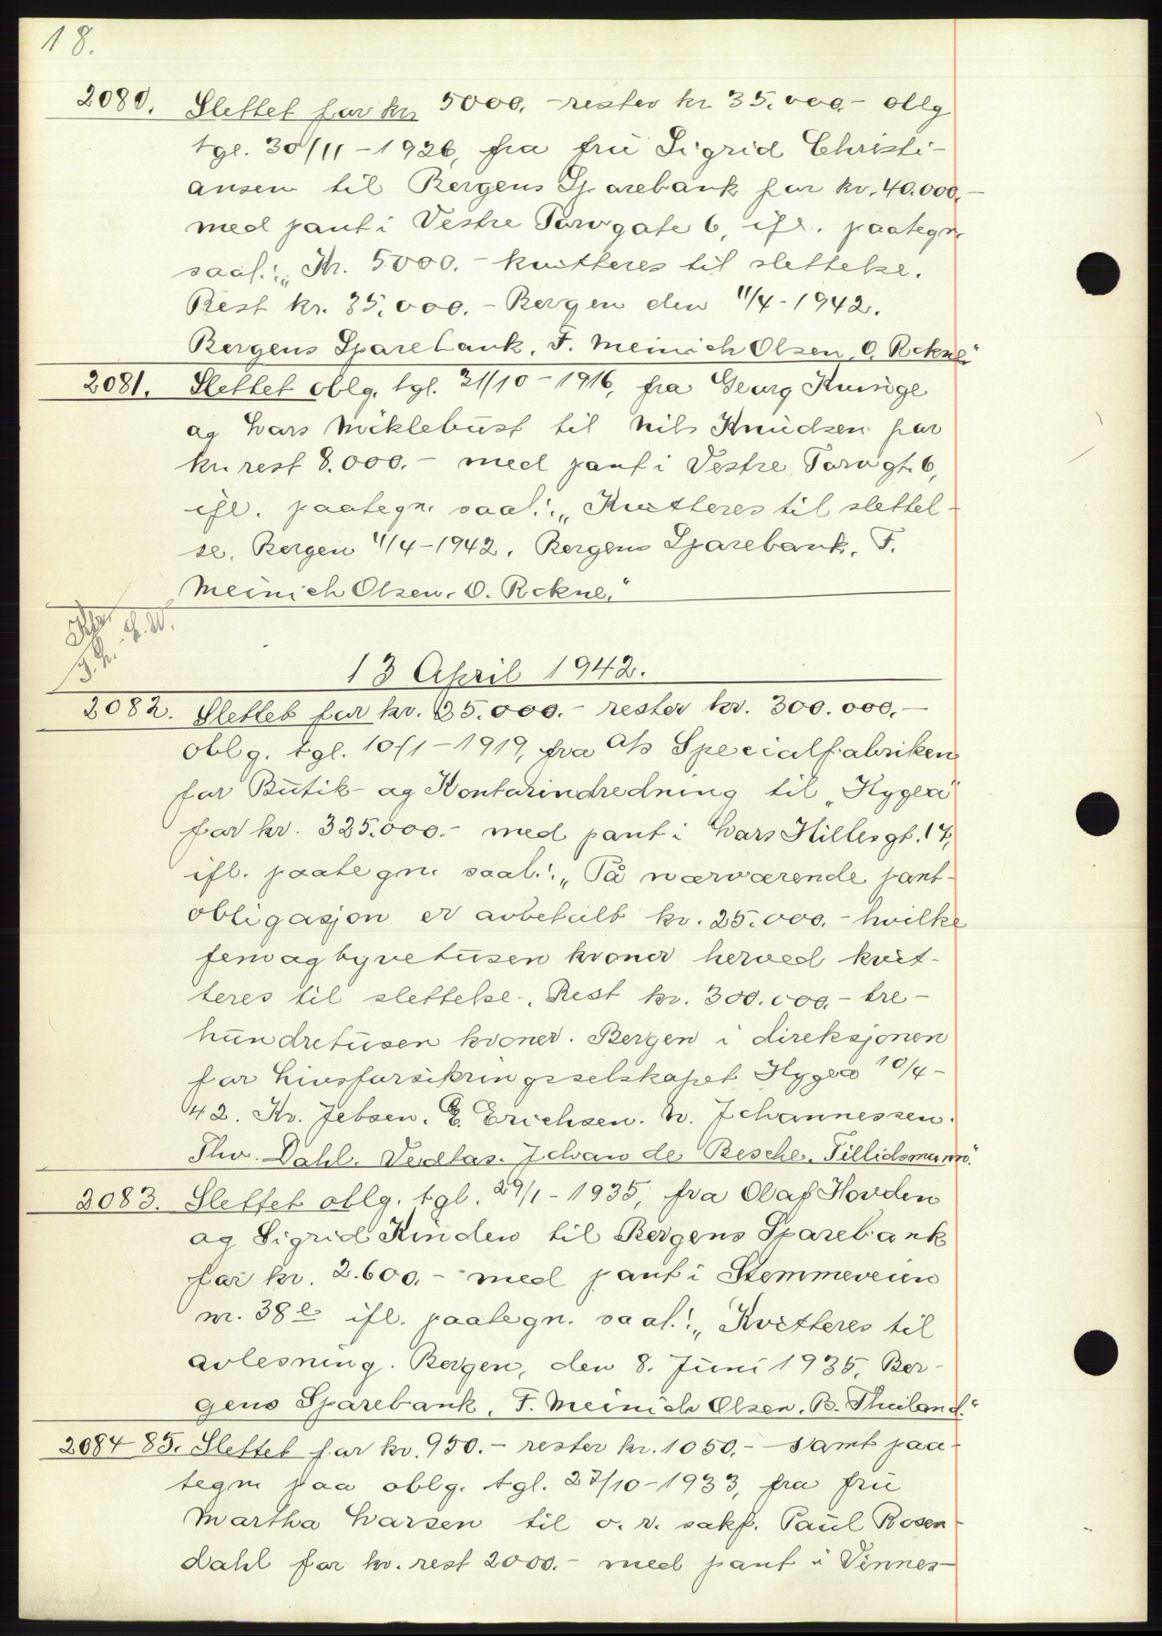 18.
2080. Slettet for kr 5000.- rester kr. 35.000.- oblg
tgl. 30/11-1926, fra fru Sigrid Christi-
ansen til Bergens Sparebank for kr. 40.000.-
med pant i Vestre Torvgate 6, ifl. paategn
saal.: „Kr. 5000.- kvitteres til slettelse.
Rest kr. 35.000.- Bergen den 11/4-1942.
Bergens Sparebank. F. Meinich Olsen. O. Rekne."
2081. Slettet oblg. tgl. 21/10-1916, fra Georg
og Lars Miklebust til Nils Knudsen for
kr. rest 8.000.- med pant i Vestre Torvgt. 6,
ifl. paategn. saal.: „Kvitteres til slettel-
se. Bergen 11/4-1942. Bergens Sparebank. F.
Meinich Olsen. O. Rekne."
13 April 1942.
2082. Slettet for kr. 25.000.- rester kr. 300.000.-
oblg. tgl. 10/1-1919, fra A/s Specialfabriken
for Butik- og Kontorindredning til „Hygea"
for kr. 325.000.- med pant i Lars Hillesgt. 17,
ifl. paategn. saal.: „På nærværende pant-
obligasjon er avbetalt kr. 25.000.- hvilke
femogtyvetusen kroner herved kvit-
teres til slettelse. Rest kr. 300.000.- tre-
hundretusen kroner. Bergen i direksjonen
for Livsforsikringsselskapet Hygea 10/4-
42. Kr. Jebsen. E. Erichsen. N. Johannessen.
Thv. Dahl. Vedtas. Johan de Besche. Tillidsmann".
2083. Slettet oblg. tgl. 29/1-1935, fra Olaf Hovden
og Sigrid Kinden til Bergens Sparebank
for kr. 2.600.- med pant i Stemmeveien
nr. 38e ifl. paategn. saal.: „Kvitteres til
avlesning. Bergen, den 8. Juni 1935, Ber-
gens Sparebank, F. Meinich Olsen. B. Thuland."
2084-85. Slettet for kr. 950.- rester kr. 1050.- samt paa-
tegn paa oblg. tgl. 27/10-1933, fra fru
Martha Larsen til o.r. sakf. Paul Rosen
dahl for kr. rest 2000.- med pant i Vinnes-